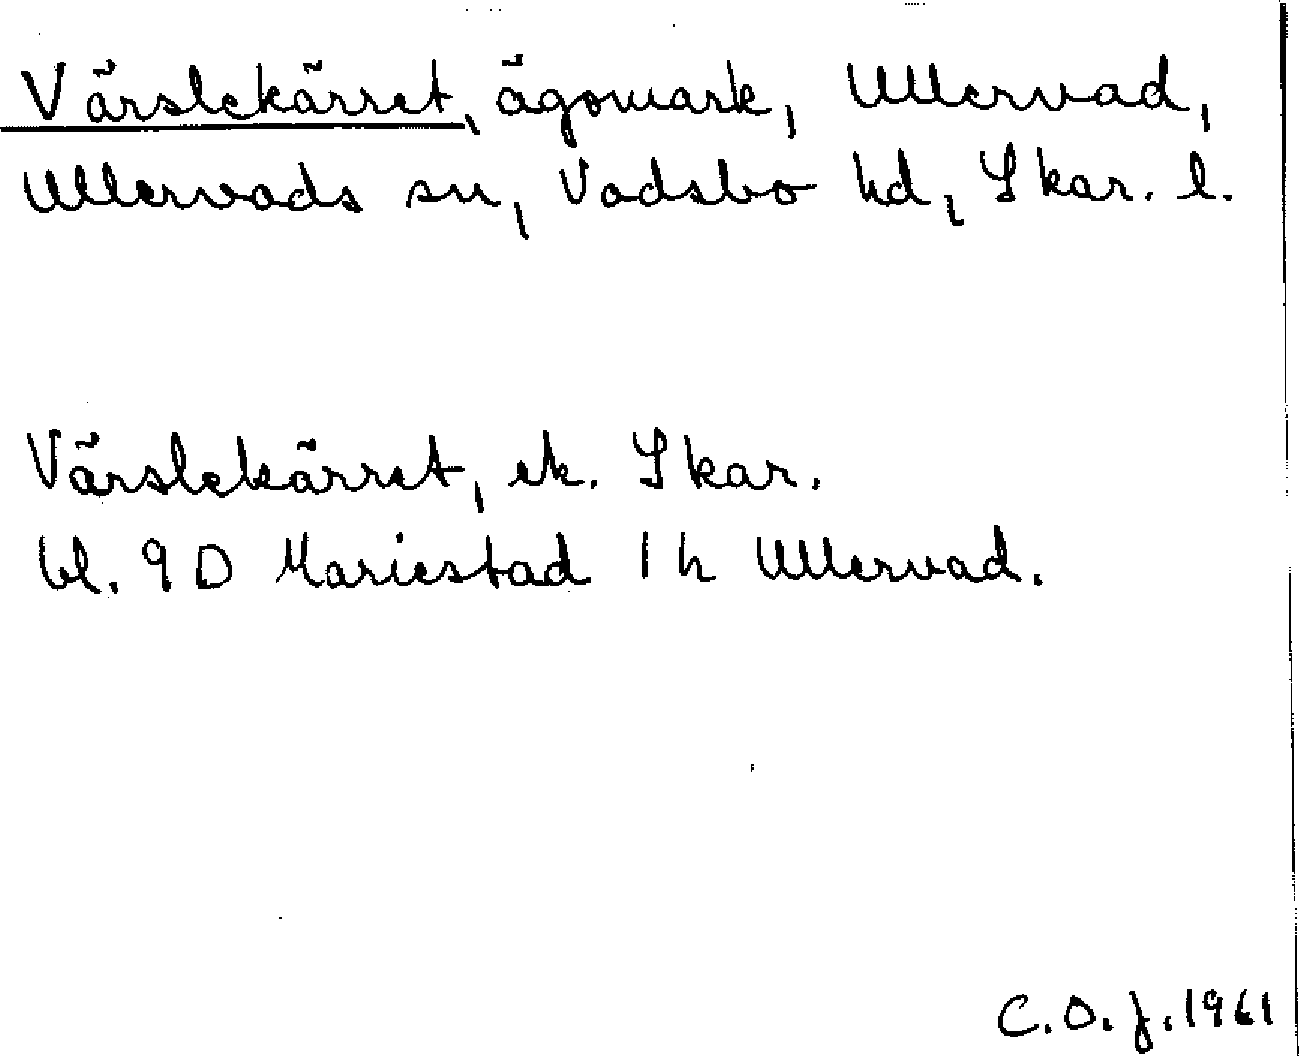 Värslekärret, ägomark, Ullervad,
Ullervads sn, Vadsbo hd, Skar. l.
Värslekärret, ek. Skar.
bl. 9 D Mariestad 1 h Ullervad.
C.O.J. 1961